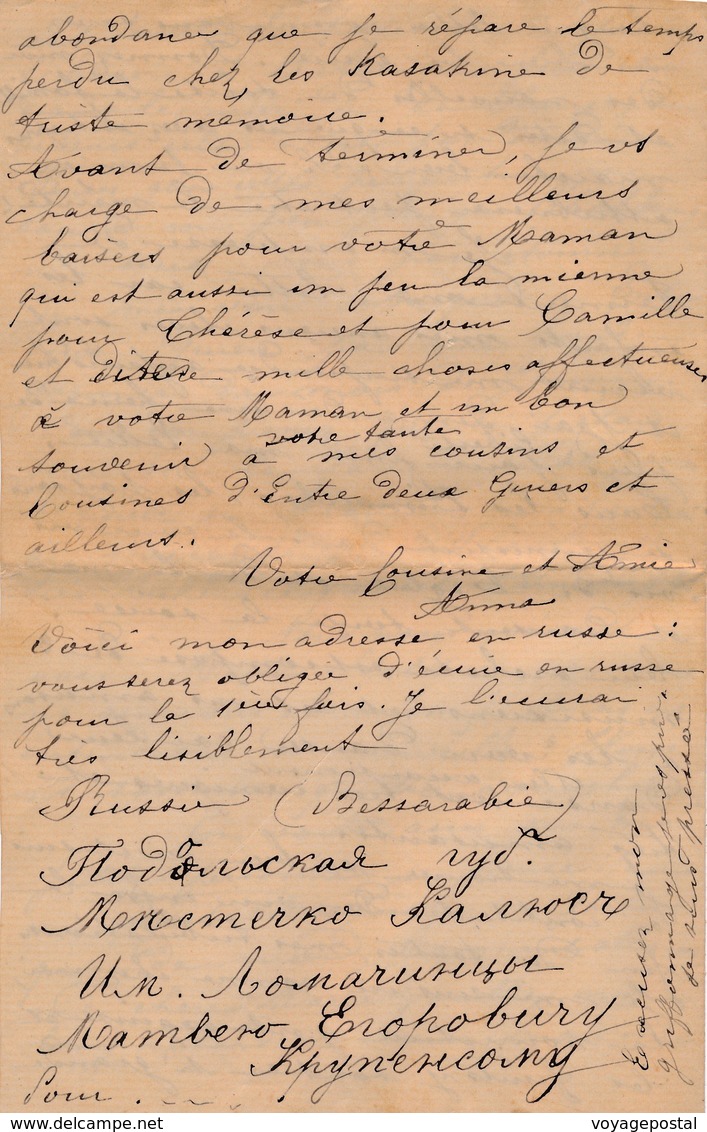 abondance que je répare le temps
perdu chez les Kasakine de
triste mémoire.
Avant de terminer, je vs
charge de mes meilleurs
baisers pour votre Maman
qui est aussi un peu la mienne
pour Thérèse et pour Camille
et dites mille choses affectueuses
à votre Maman et un bon
votre tante
souvenir à mes cousins et
Cousines d'Entre deux Guiers et
ailleurs.
Votre Cousine et Amie
Anna
Voici mon adresse en russe :
vous serez obligée d'écrire en russe
pour la 1ère fois. Je l'écrirai
très lisiblement
Russie (Bessarabie)
Подольская губ.
Мѣстечко Калюсъ
Им. Ломачинцы
Матвею Егоровичу
Крупенскому
Pour . . . .
Excusez mon
griffonnage
je suis pressée
voyagepostal